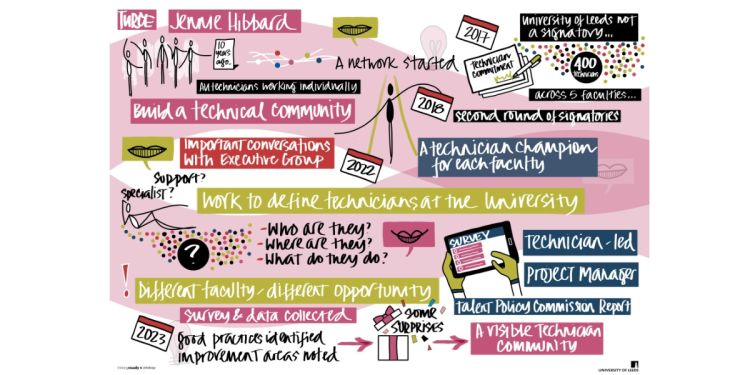 THREE
Jennie Hibbard
10
years
ago.
All technicians working individually
Build a technical community
A network started
2017
University of Leeds not
a signatory...
Technician
Commitment
400
Technicians
across 5 faculties...
2018
second round of signatories
Important conversations
with Executive Group
2022
A technician champion
for each faculty
Support?
Specialist?
Work to define technicians at the University
?
- Who are they?
- Where are they?
- What do they do?
SURVEY
Technician-led
Project Manager
Talent Policy Commission Report
! Different faculty - different opportunity
Survey & data collected
2023
good practices identified
improvement areas noted
Some
surprises
A visible Technician
Community
UNIVERSITY OF LEEDS